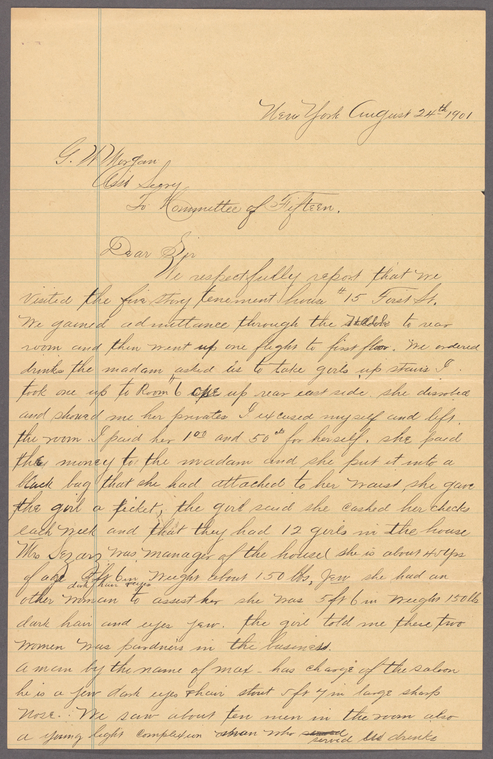 New York August 24th 1901
G. W. Morgan
Asst Secry
To Kommittee of Fifteen.
Dear Sir
We respectfully repost that we
visited the five story tenement house #15 First St.
We gained admittance through the to rear
room and then went up one flight to first floor. We ordered
drinks the madam asked us to take girls up stairs I
took one up to Room # 6 one up rear east side she disrobed
and showed me her privates I excused myself and left
the room I paid her 1 00 and 50 cts for herself. she paid
the money to the madam and she put it into a
black bag that she had attached to her waist, she gave
the girl a ticket; the girl said she cashed her checks
each week and that they had 12 girls in the house
Mrs was manager of the house she is about 45 yrs
of age 5 ft 6 in weight about 150 lbs, Jew she had an
dark hair eyes
other woman to assist her she was 5 ft 6 in weight 150 lb
dark hair and eyes Jew. the girl told me these two
women was pardners in the business.
a man by the name of max has charge of the saloon
he is a Jew dark eyes & hair stout 5 ft 7 in large sharp
nose. We saw about ten men in the room also
a young light complexion man who served
served us drinks